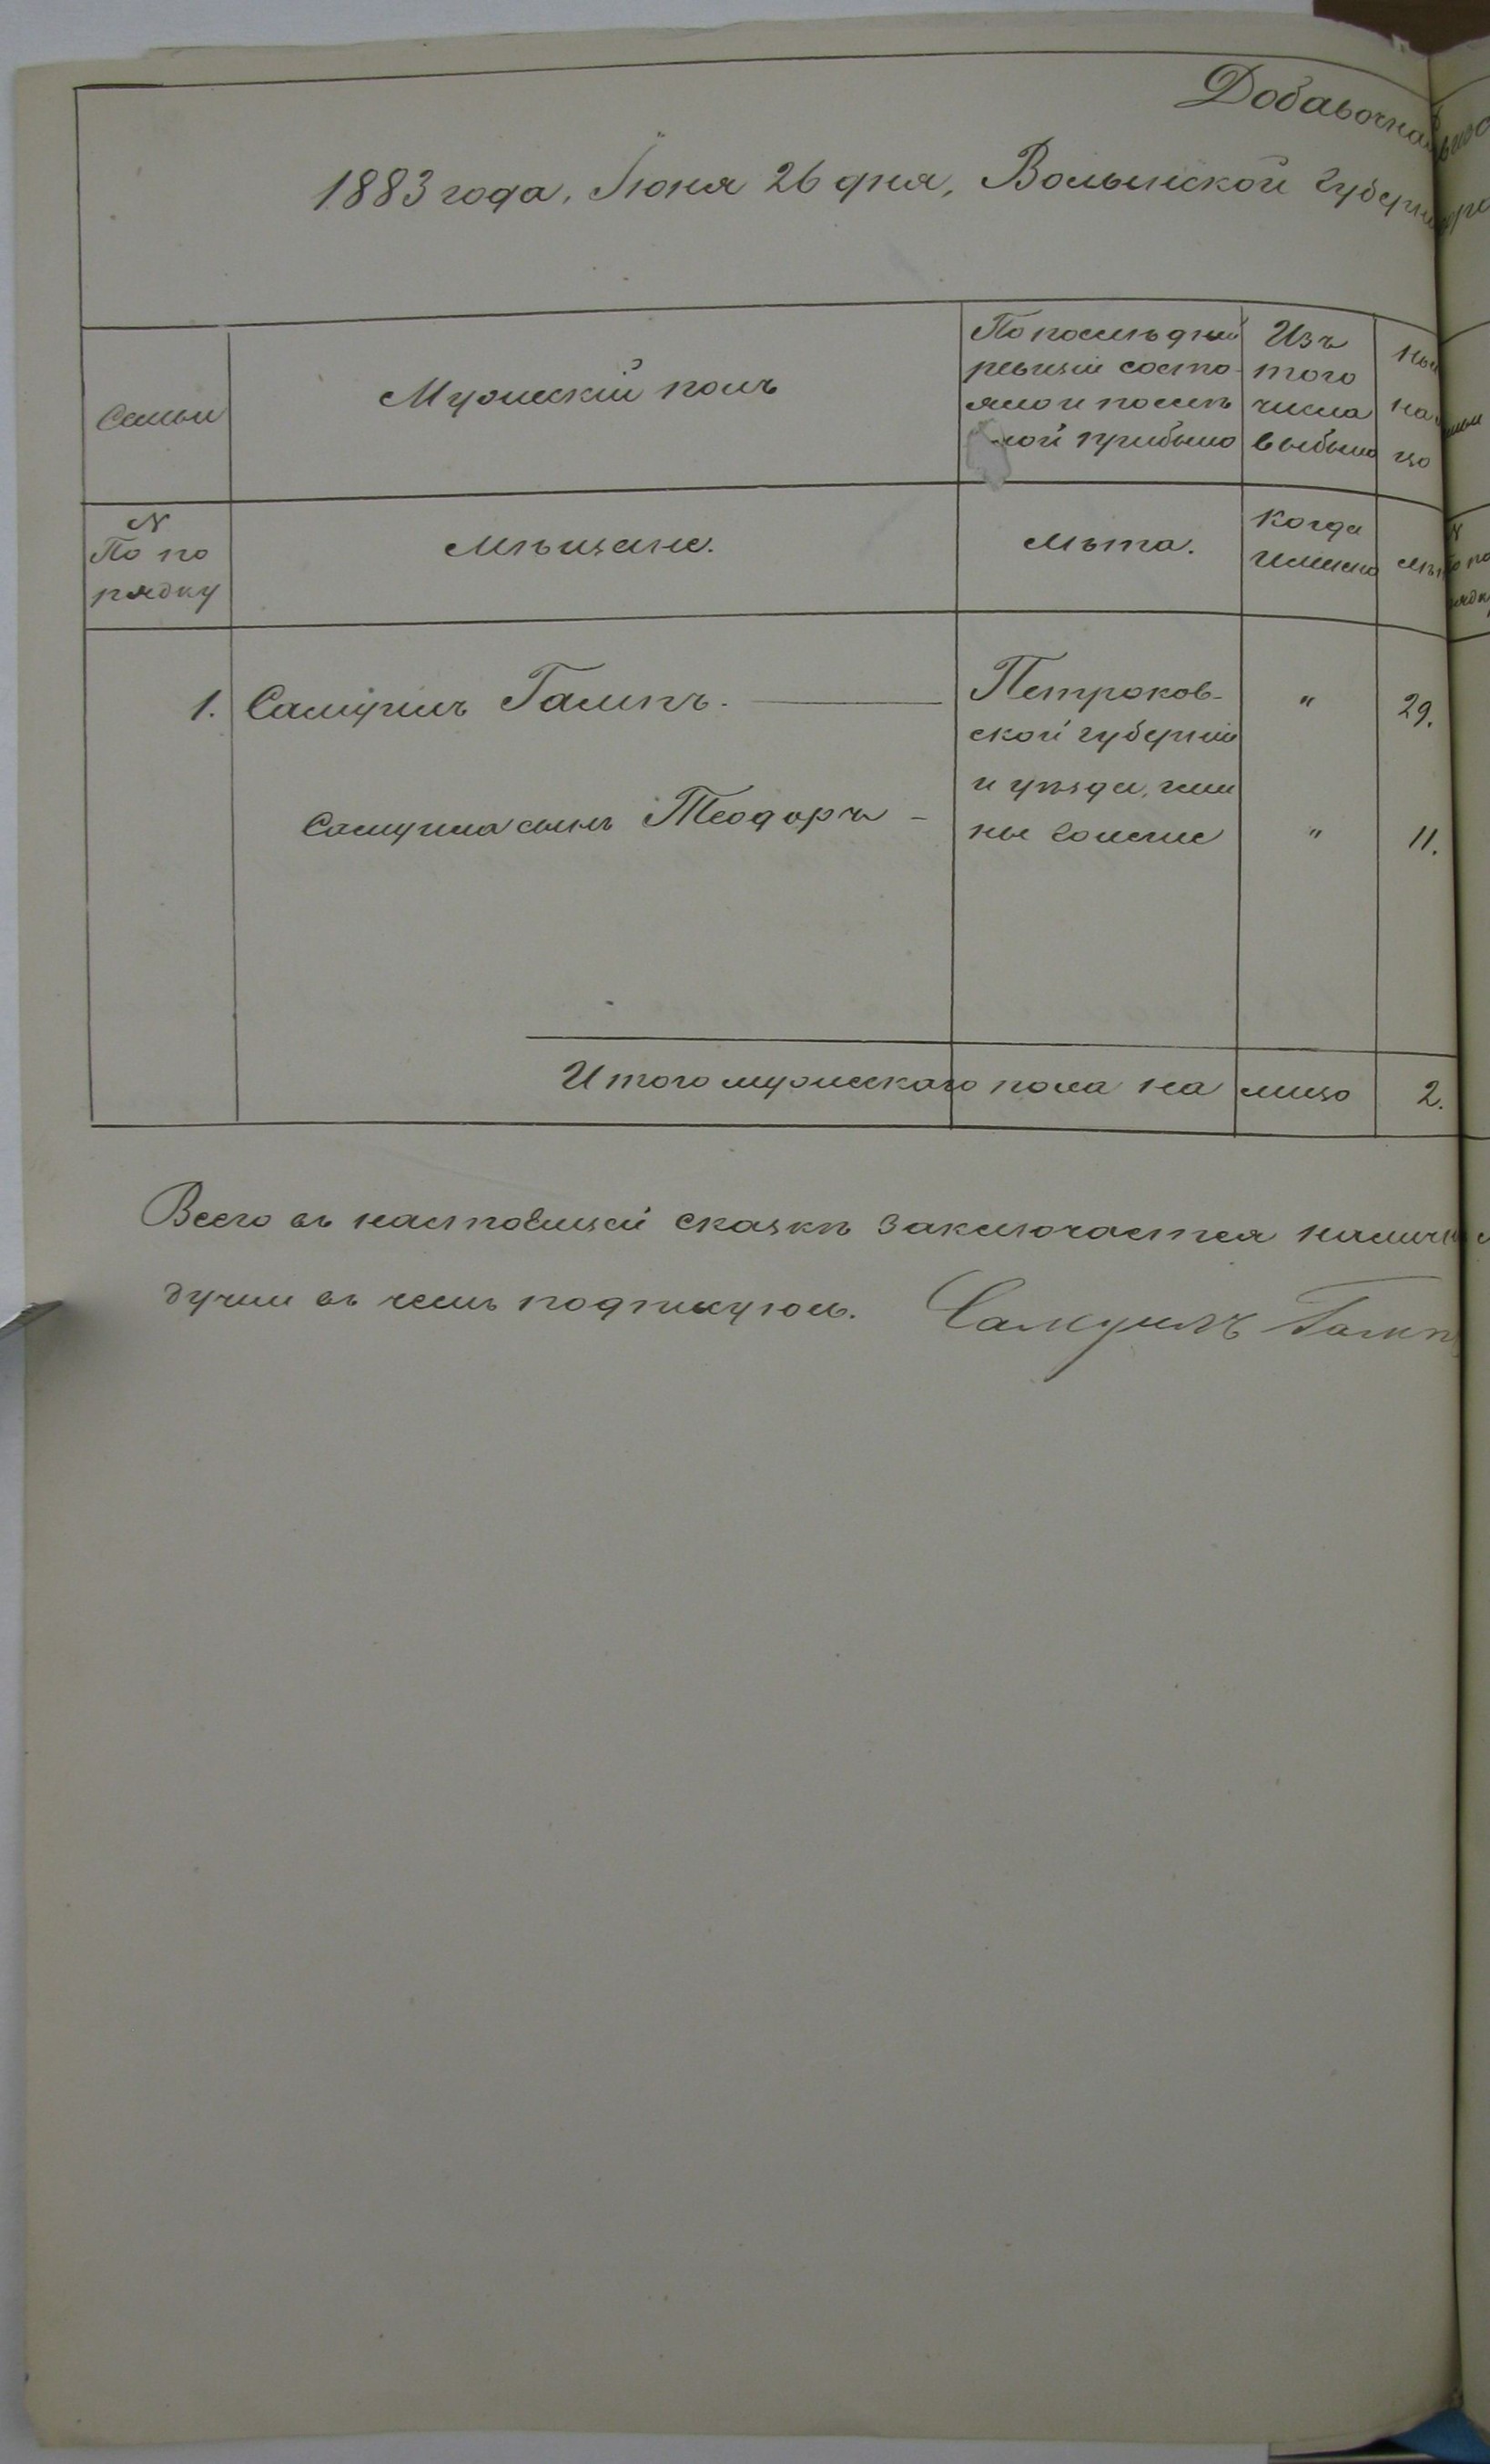 Добавочная
1883 года, Іюня 26 дня, Волынской губерн
Семьи
Мужескій полъ
По послѣдней
ревизіи состо-
яло и послѣ
ной прибыло
Изъ
того
числа
выбыло
на
цо
N
По по
рядку
Мѣщане.
Лѣта.
Когда
именно
1. Самуилъ Гампъ.
Петроков-
ской губерніи
и уѣзда, гми
ны
" 29.
Самуила сынъ Теодоръ -
" 11.
Итого мужескаго пола на лицо 2.
Всего въ настоящей сказкѣ заключается
души въ чемъ подпикуюсь. Самуилъ Гампъ